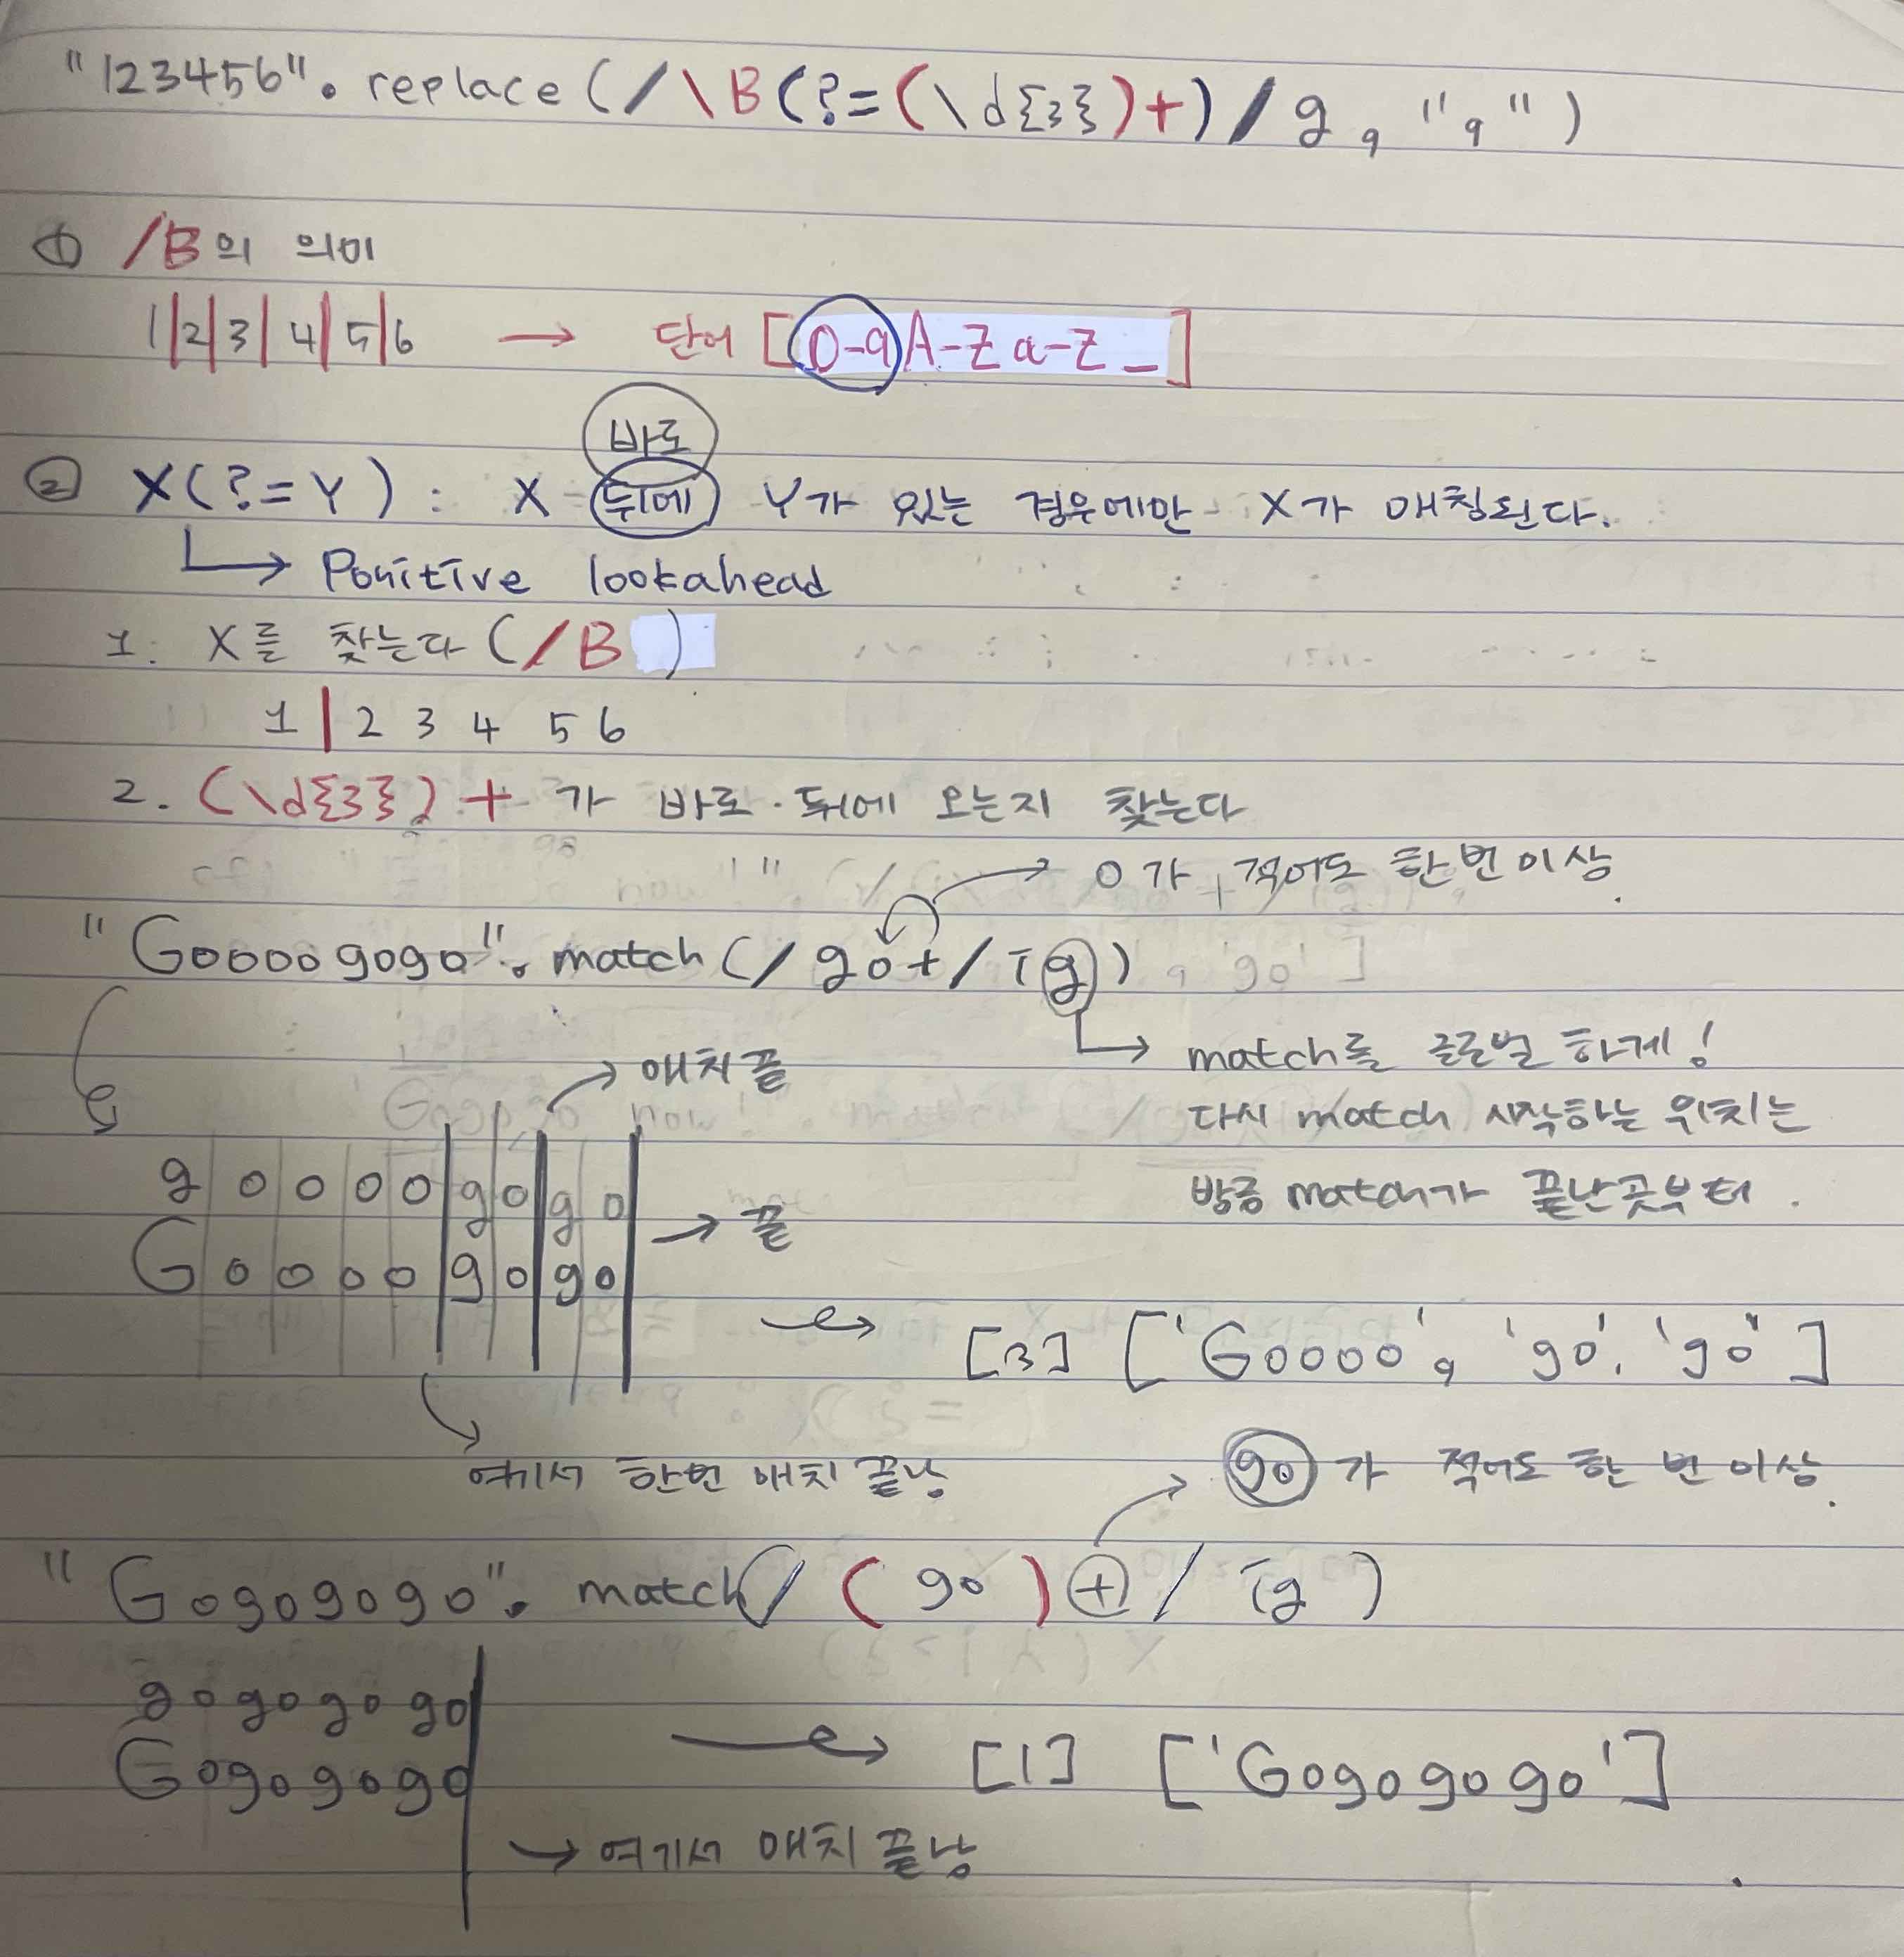 "123456". replace (/\B(?=(\d{3})+)/g, ",")
① /B의 의미
1|2|3|4|5|6 → 단어 [0-9A-Za-z_]
바로
② X(?=Y) : X 뒤에 Y가 있는 경우에만 X가 매칭된다.
→ Positive lookahead
1. X를 찾는다 (/B )
1|2 3 4 5 6
2. (\d{3})+ 가 바로 뒤에 오는지 찾는다
→ o가 적어도 한번이상.
"Goooogogo". match(/go+/ig)
→ match를 글로벌 하게!
→ 매치 끝
다시 match 시작하는 위치는
방금 match가 끝난곳부터.
g o o o o g o g o
→ 끝
G o o o o g o g o
→ [3] ['Goooo', 'go', 'go']
여기서 한번 매치 끝남
go가 적어도 한 번 이상.
"Gogogogo". match(/(go)+/ig)
gogogogo
Gogogogo
→ [1] ['Gogogogo']
→ 여기서 매치 끝남